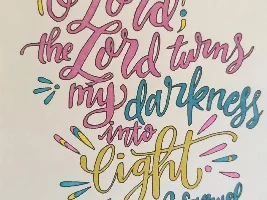 O Lord;
the Lord turns
my darkness
into
light.